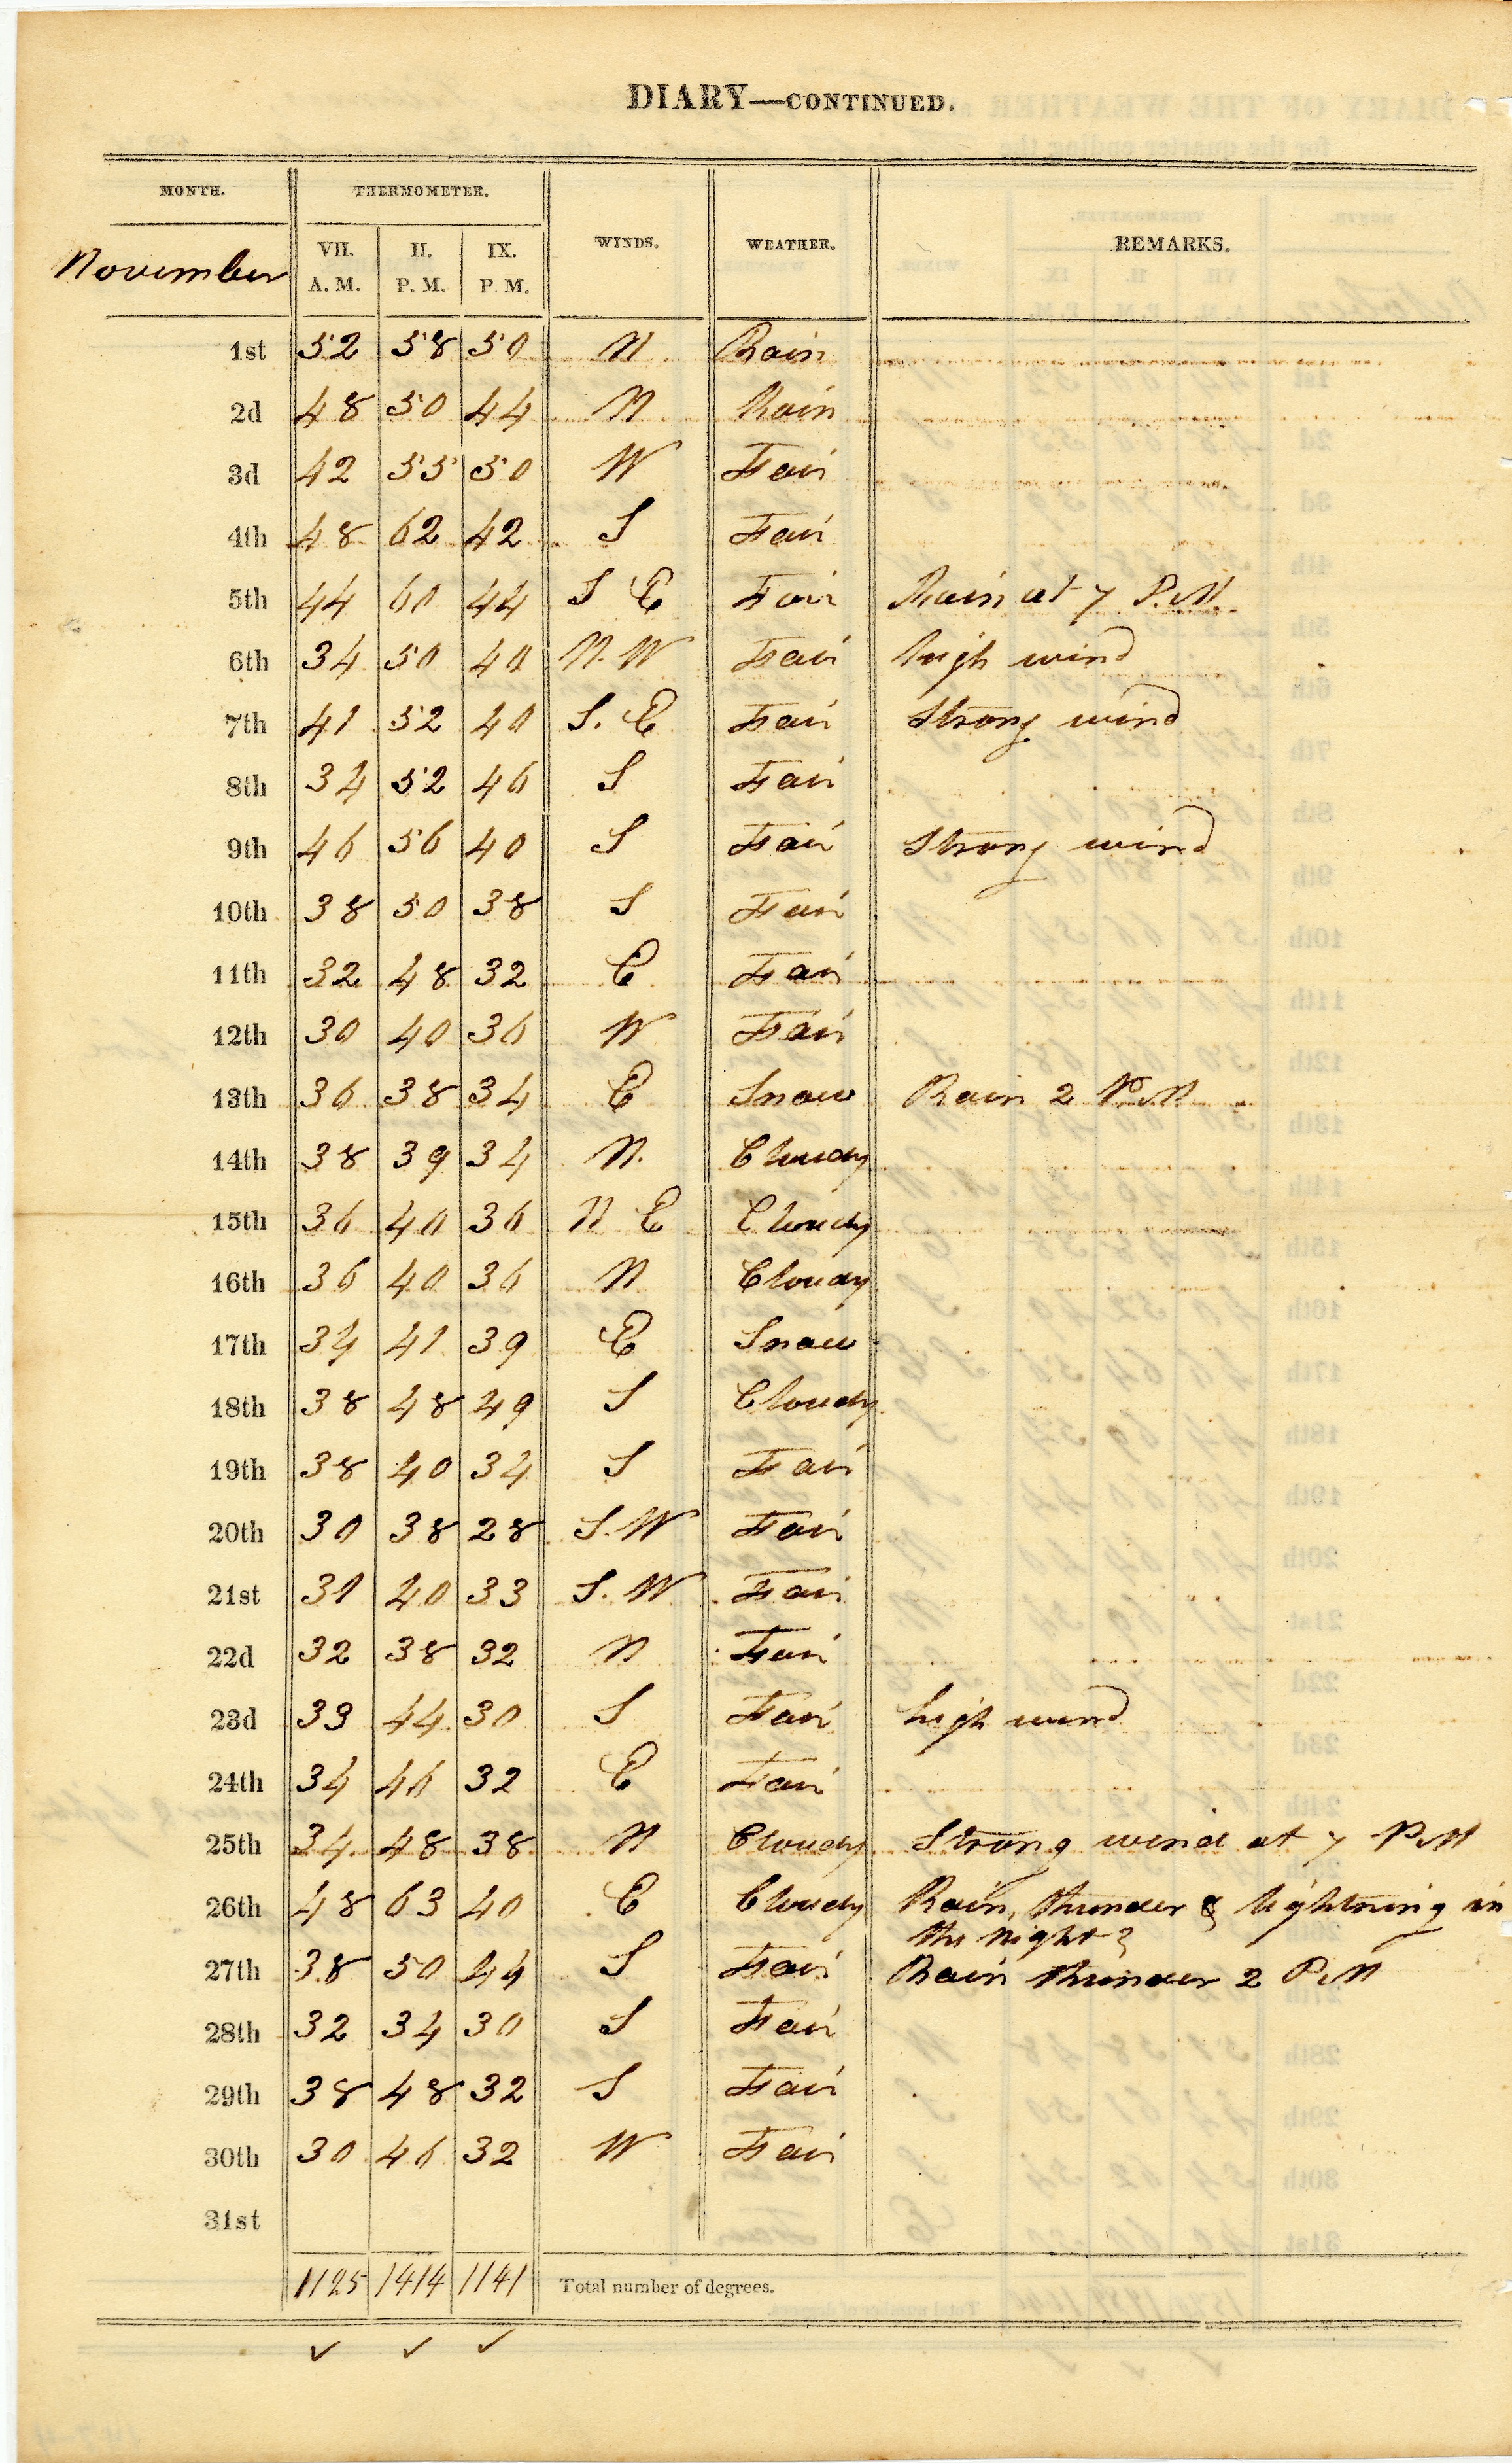 DIARY—CONTINUED.
MONTH. THERMOMETER. WINDS. WEATHER. REMARKS.
November VII. A. M. II. P. M. IX. P. M.
1st 52 58 50 N Rain
2d 48 50 44 N Rain
3d 42 55 50 W Fair
4th 48 62 42 S Fair
5th 44 60 44 S E Fair Rain at 7 P.M.
6th 34 50 40 N. W Fair high wind
7th 41 52 40 S. E Fair Strong wind
8th 34 52 46 S Fair
9th 46 56 40 S Fair Strong wind
10th 38 50 38 S Fair
11th 32 48 32 E Fair
12th 30 40 36 W Fair
13th 36 38 34 E Snow Rain 2 P.M
14th 38 39 34 N. Cloudy
15th 36 40 36 N E Cloudy
16th 36 40 36 N Cloudy
17th 34 41 39 E Snow
18th 38 48 49 S Cloudy
19th 38 40 34 S Fair
20th 30 38 28 S. W Fair
21st 31 40 33 S. W Fair
22d 32 38 32 N Fair
23d 33 44 30 S Fair high wind
24th 34 46 32 E Fair
25th 34 48 38 N Cloudy Strong wind at 7 P.M
26th 48 63 40 E Cloudy Rain, thunder & lightning in
the night
27th 38 50 44 S Fair Rain thunder 2 P.M
28th 32 34 30 S Fair
29th 38 48 32 S Fair
30th 30 46 32 W Fair
31st
1125 1414 1141 Total number of degrees.